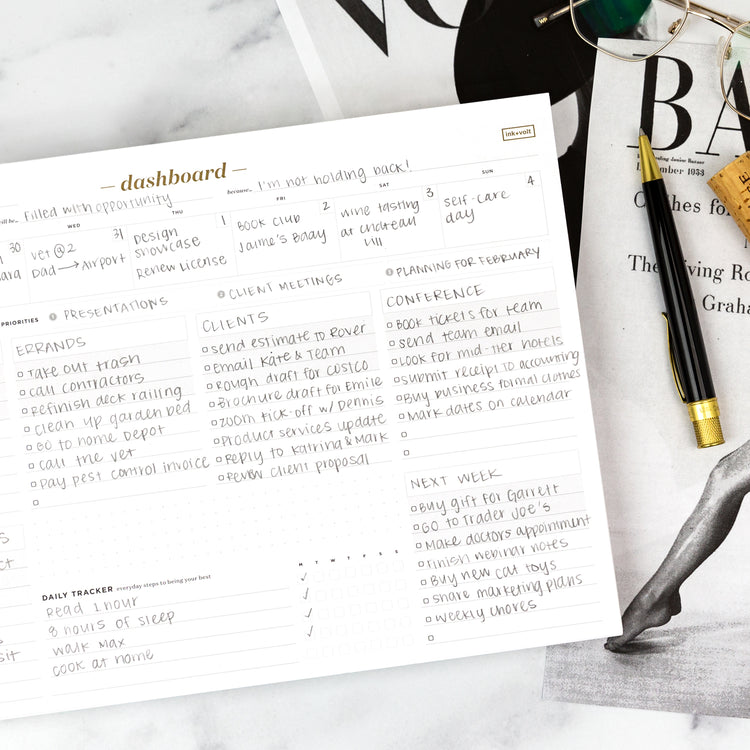 V
BA
ink+volt
— dashboard —
filled with opportunity because... I'm not holding back!
WED THU FRI SAT SUN
30
31 vet @ 2
Dad → Airport
1 DESIGN
showcase
Renew License
2 BOOK CLUB
Jaime's Bday
3 wine tasting
at chateau
4 self-care
day
PRIORITIES
1 PRESENTATIONS
2 CLIENT MEETINGS
3 PLANNING FOR FEBRUARY
ERRANDS
Take out trash
call contractors
Refinish deck railing
Clean up garden bed
GO to Home Depot
call the vet
Pay pest control invoice
CLIENTS
send estimate to Rover
Email Kate & Team
Rough draft for costco
Brochure draft for Emile
zoom tick-off w/ Dennis
Product services update
Reply to Katrina & Mark
Review client proposal
CONFERENCE
BOOK tickets for team
send team email
Look for mid-tier hotels
submit receipt to accounting
Buy business formal clothes
Mark dates on calendar
NEXT WEEK
Buy gift for Garrett
GO to Trader Joe's
Make doctors appointment
Finish webinar notes
Buy new cat toys
share marketing plans
weekly chores
DAILY TRACKER everyday steps to being your best
M T W T F S S
Read 1 hour
8 hours of sleep
walk Max
cook at home
1953